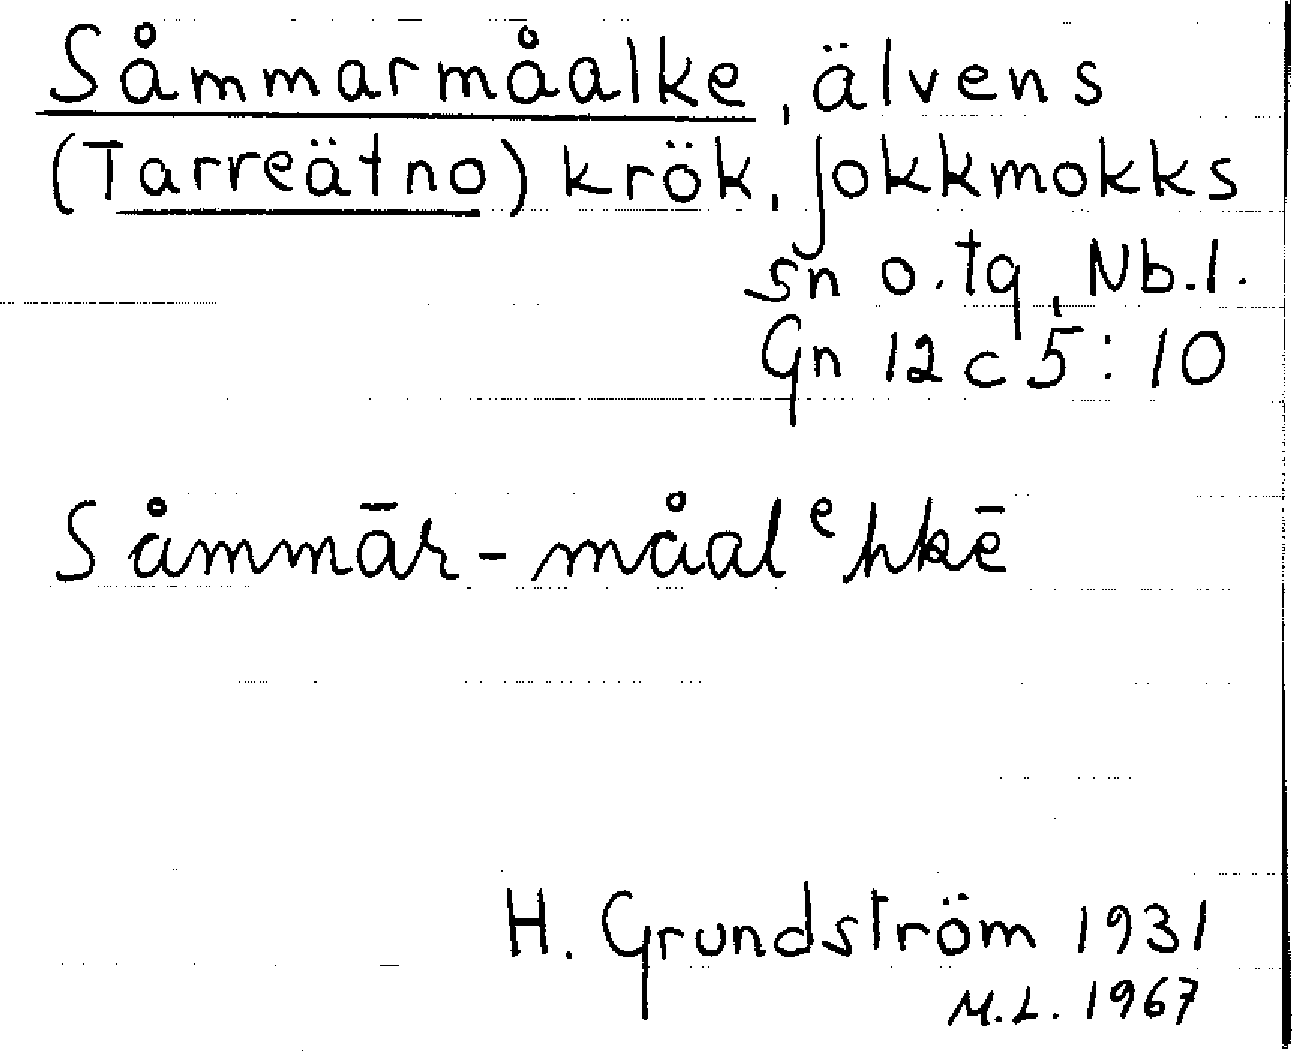 Såmmarmåalke, älvens
(Tarreätno) krök, Jokkmokks
sn o. tg, Nb.l.
Gn 12 c 5:10
Såmmār-måalᵉhkē
H. Grundström 1931
M.L. 1967